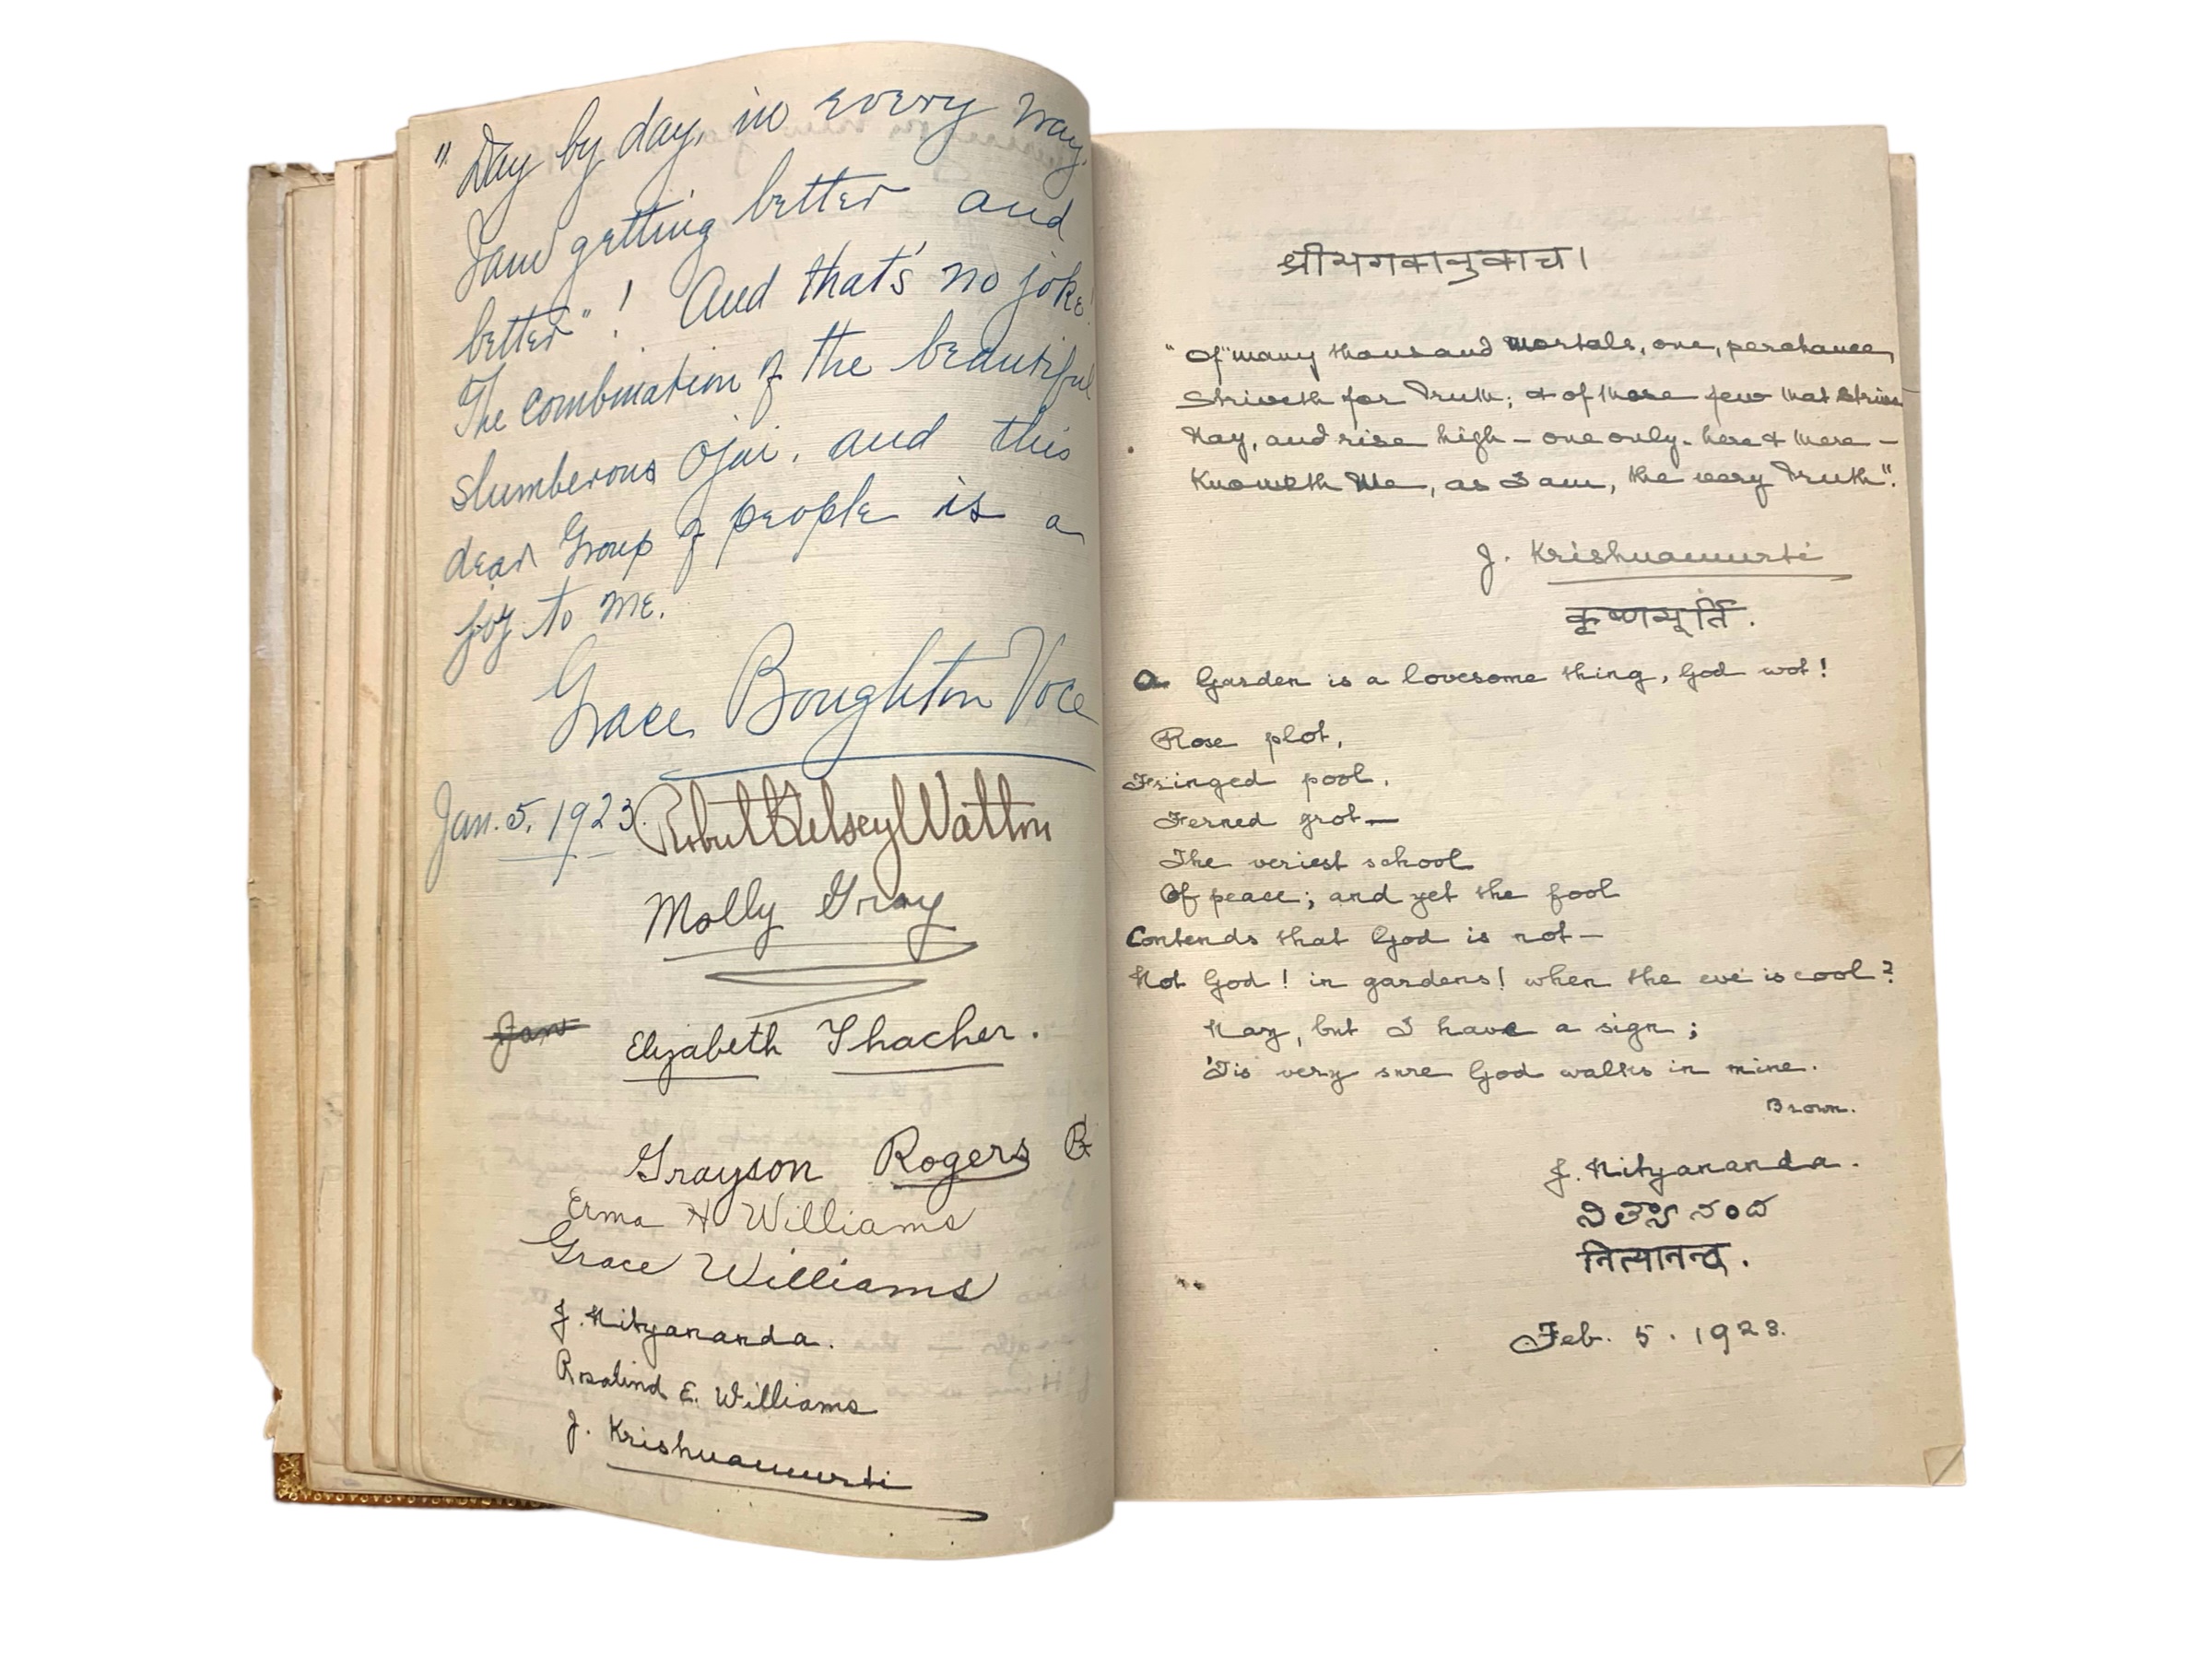 "Day by day, in every way,
I am getting better and
better"! And that's no joke!
The combination of the beautiful
slumberous Ojai, and this
dear Group of people is a
joy to me.
Grace Boughton Voce
Jan. 5, 1923.
Robert Kelsey Walton
Molly Gray
Jan
Elizabeth Thacher.
Grayson Rogers
Erma H Williams
Grace Williams
J. Nityananda.
Rosalind E. Williams
J. Krishnamurti
श्रीभगवानुवाच।
"Of many thousand mortals, one, perchance,
Striveth for Truth; & of those few that strive
Nay, and rise high - one only - here & there -
Knoweth Me, as I am, the very Truth".
J. Krishnamurti
कृष्णमूर्ति.
A Garden is a lovesome thing, God wot!
Rose plot,
Fringed pool,
Ferned grot—
The veriest school
Of peace; and yet the fool
Contends that God is not—
Not God! in gardens! when the eve is cool?
Nay, but I have a sign;
'Tis very sure God walks in mine.
Brown.
J. Nityananda.
నిత్యానంద
नित्यानन्द.
Feb. 5. 1923.